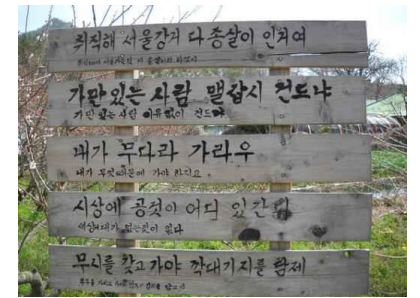 취직해 서울강거 다 종살이 인겨여
가만있는 사람 맬갑시 건드냐
가만 있는 사람 이유없이 건드냐
내가 무다라 가라우
내가 무엇 때문에 가야 하지요
시상에 공것이 어딨 있간디
세상에 공것이 없다
무시를 갖고 가야 깍대기지를 탐제